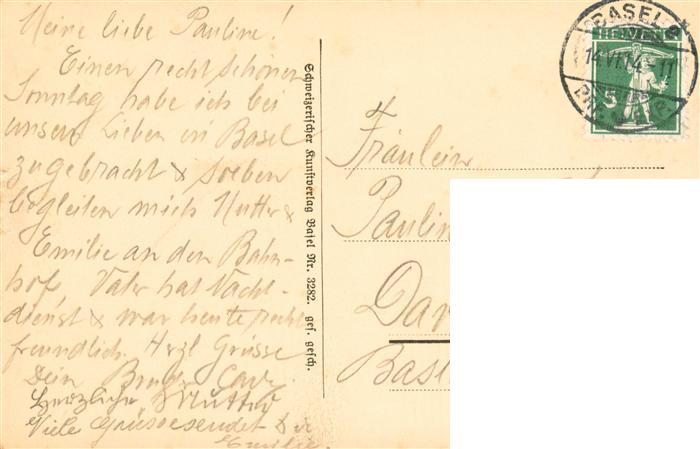 Meine liebe Pauline!
Einen recht schönen
Sonntag habe ich bei
unsern Lieben in Basel
zugebracht & soeben
begleiten mich Mutter &
Emilie an den Bahn-
hof. Vater hat Nacht-
dienst & war heute recht
freundlich. Herzl Grüsse
Dein Bruder
Herzliche Mutter
Viele Grüsse sendet Dir
Emilie.
Schweizerischer Kunstverlag Basel Nr. 3282. ges. gesch.
BASEL 2
14.VI.14. 11
HELVETIA
5
Fräulein
Pauline
Dar
Basel